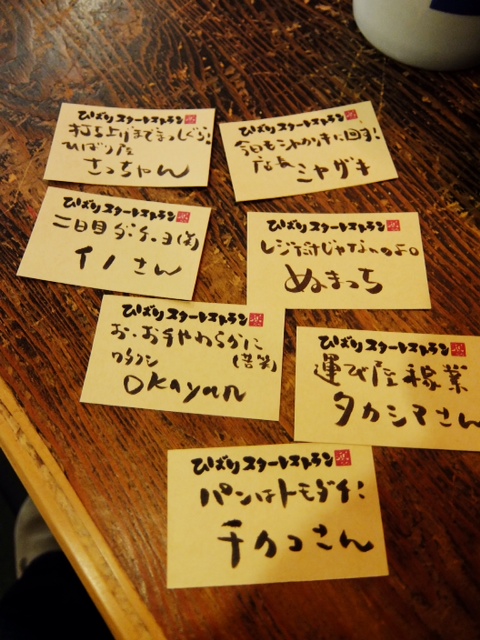 ひばりスタートストラン
打ち上りまでまっしぐら!
ひばり座
さっちゃん
ひばりスタートストラン
今日もシャカリキに回す!
店長 ミヤザキ
ひばりスタートストラン
二日目ダ・ケ・ヨ(笑)
イノさん
ひばりスタートストラン
レジだけじゃないのよ。
ぬまっち
ひばりスタートストラン
お・お手やわらかに
(苦笑)
Okayan
ひばりスタートストラン
運び座稼業
タカシマさん
ひばりスタートストラン
パンはトモダチ!
チクコさん